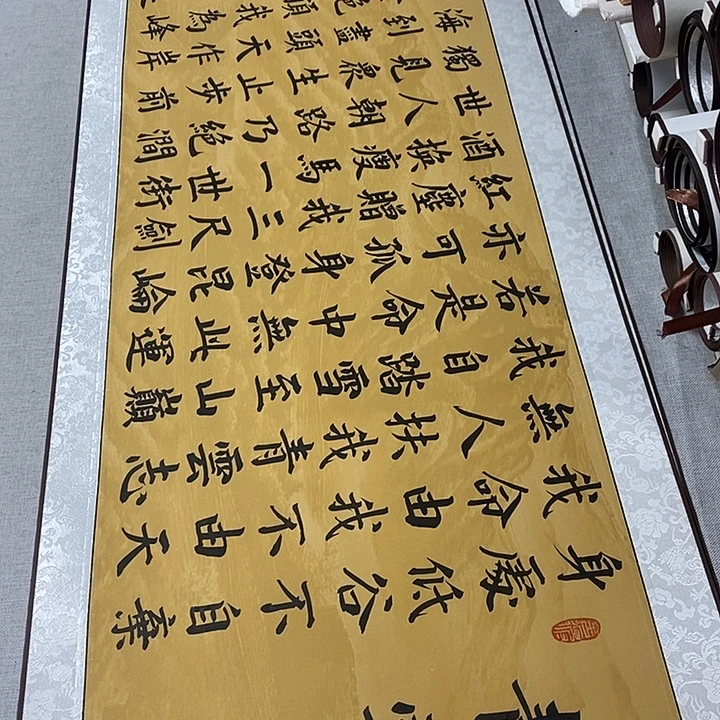 身處低谷不自棄
我命由我不由天
無人扶我青雲志
我自踏雪至山巔
若是命中無此運
亦可孤身登昆崘
紅塵贈我三尺劍
酒換瘦馬一世街
世人朝路乃絕澗
獨見眾生止步前
海到盡頭天作岸
絕頂我為峰